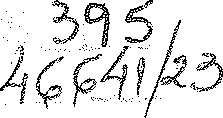 395
46641/23